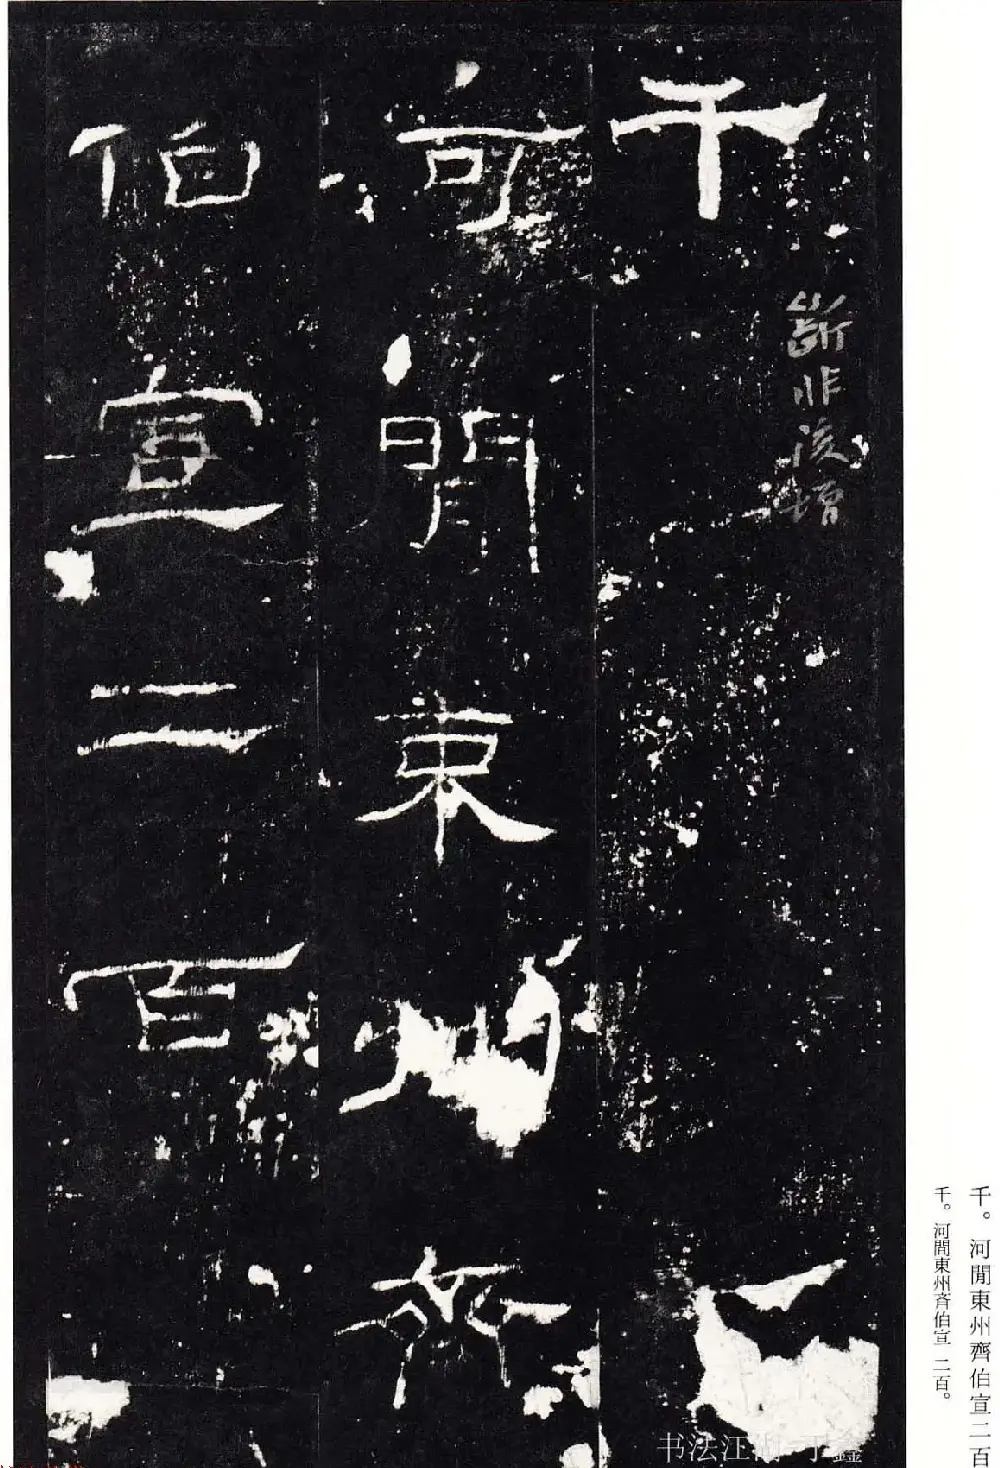 千
斷非後增
河閒東州齊
伯宣二百
千。河閒東州齊伯宣二百
千。河間東州斉伯宣 二百。
书法江湖 于鑫